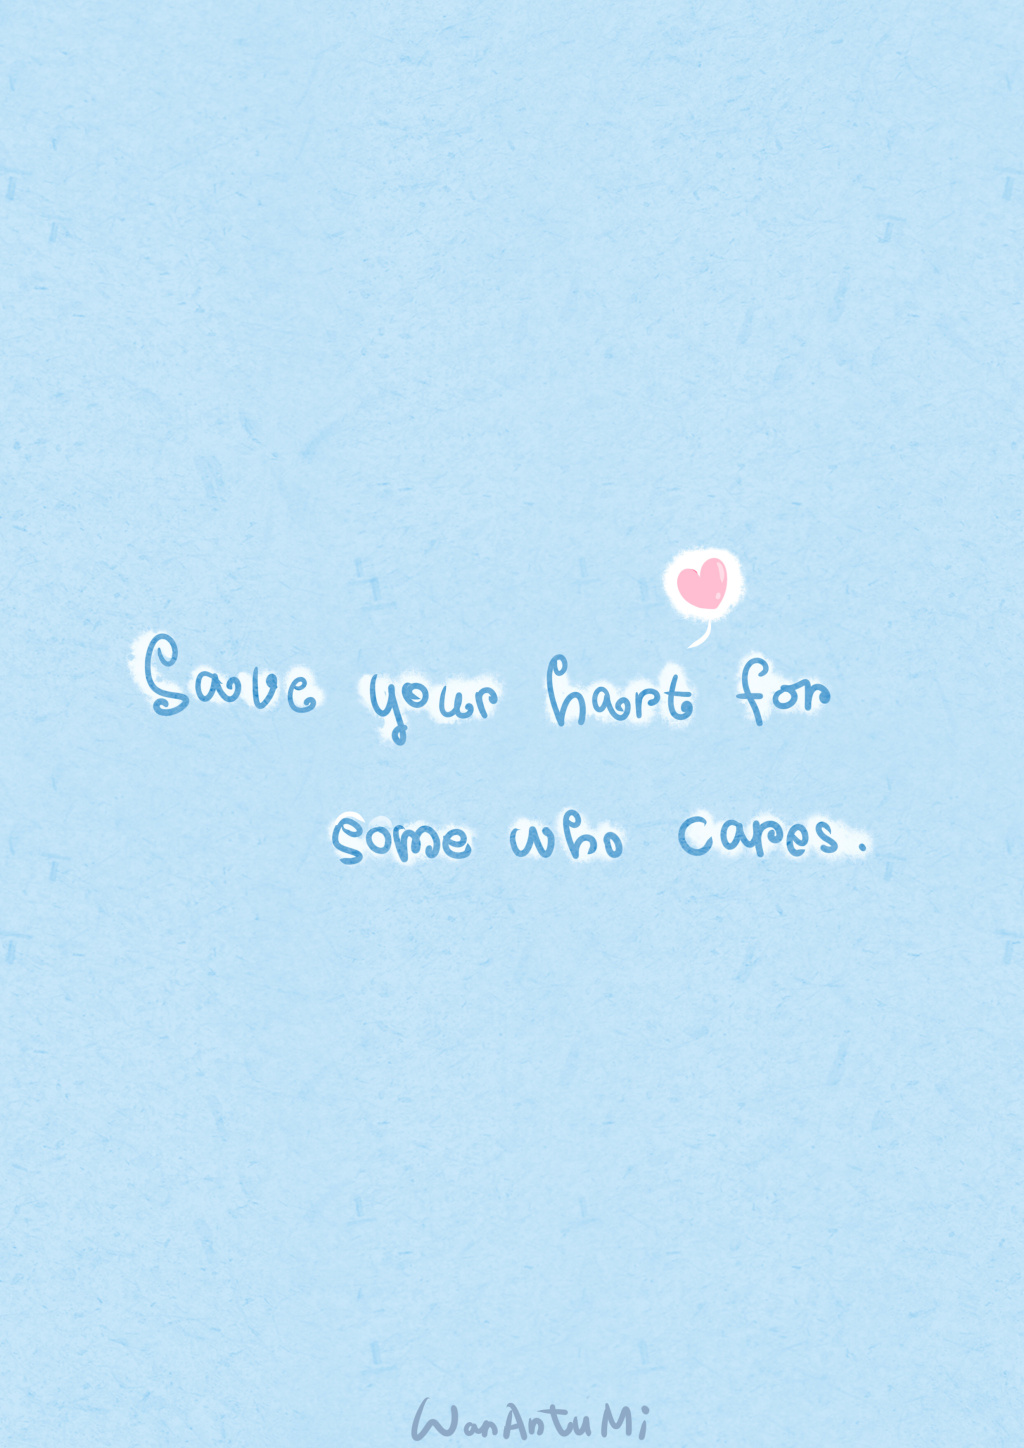 Save your hart for
some who cares.
WanAntuMi